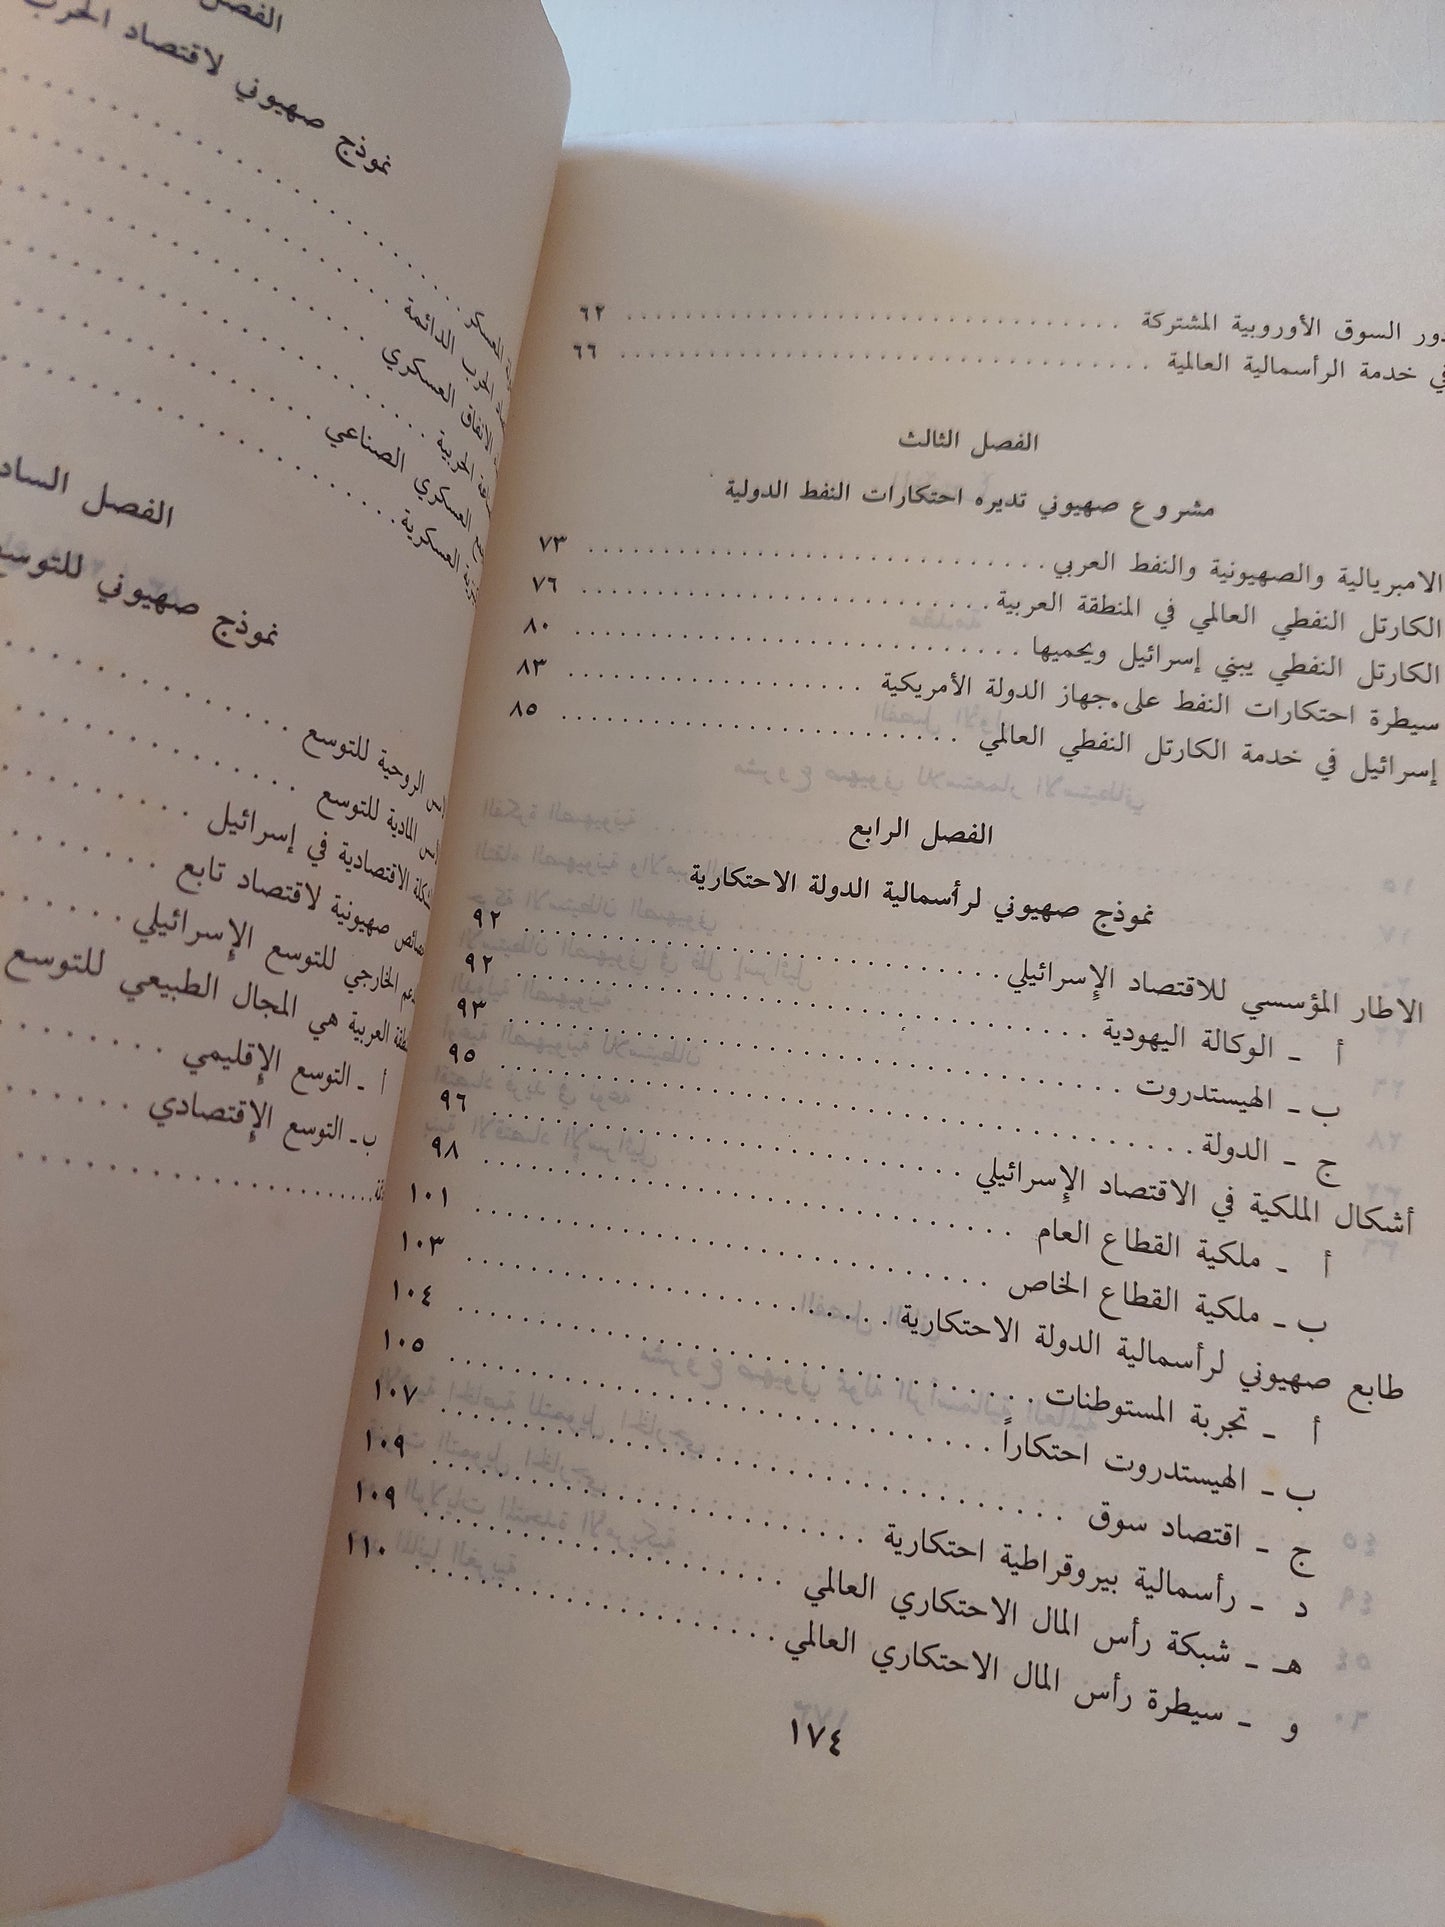 دور السوق الأوروبية المشتركة ٦٢
في خدمة الرأسمالية العالمية ٦٦
الفصل الثالث
مشروع صهيوني تديره احتكارات النفط الدولية
الامبريالية والصهيونية والنفط العربي ٧٣
الكارتل النفطي العالمي في المنطقة العربية ٧٦
الكارتل النفطي يبني إسرائيل ويحميها ٨٠
سيطرة احتكارات النفط على جهاز الدولة الأمريكية ٨٣
إسرائيل في خدمة الكارتل النفطي العالمي ٨٥
الفصل الرابع
نموذج صهيوني لرأسمالية الدولة الاحتكارية
الاطار المؤسسي للاقتصاد الإسرائيلي ٩٢
أ ـ الوكالة اليهودية ٩٢
ب ـ الهيستدروت ٩٣
ج ـ الدولة ٩٥
أشكال الملكية في الاقتصاد الإسرائيلي ٩٦
أ ـ ملكية القطاع العام ٩٨
ب ـ ملكية القطاع الخاص ١٠١
طابع صهيوني لرأسمالية الدولة الاحتكارية ١٠٣
أ ـ تجربة المستوطنات ١٠٤
ب ـ الهيستدروت احتكاراً ١٠٥
ج ـ اقتصاد سوق ١٠٧
د ـ رأسمالية بيروقراطية احتكارية ١٠٩
هـ ـ شبكة رأس المال الاحتكاري العالمي ١٠٩
و ـ سيطرة رأس المال الاحتكاري العالمي ١١٠
١٧٤
الفصل
نموذج صهيوني لاقتصاد الحرب
الحرب الدائمة
الانفاق العسكري
الحربية
العسكري الصناعي
العسكرية
الفصل
نموذج صهيوني للتوسع
الروحية للتوسع
المادية للتوسع
الاقتصادية في إسرائيل
صهيونية لاقتصاد تابع
الخارجي للتوسع الإسرائيلي
العربية هي المجال الطبيعي للتوسع
أ ـ التوسع الإقليمي
ب ـ التوسع الإقتصادي